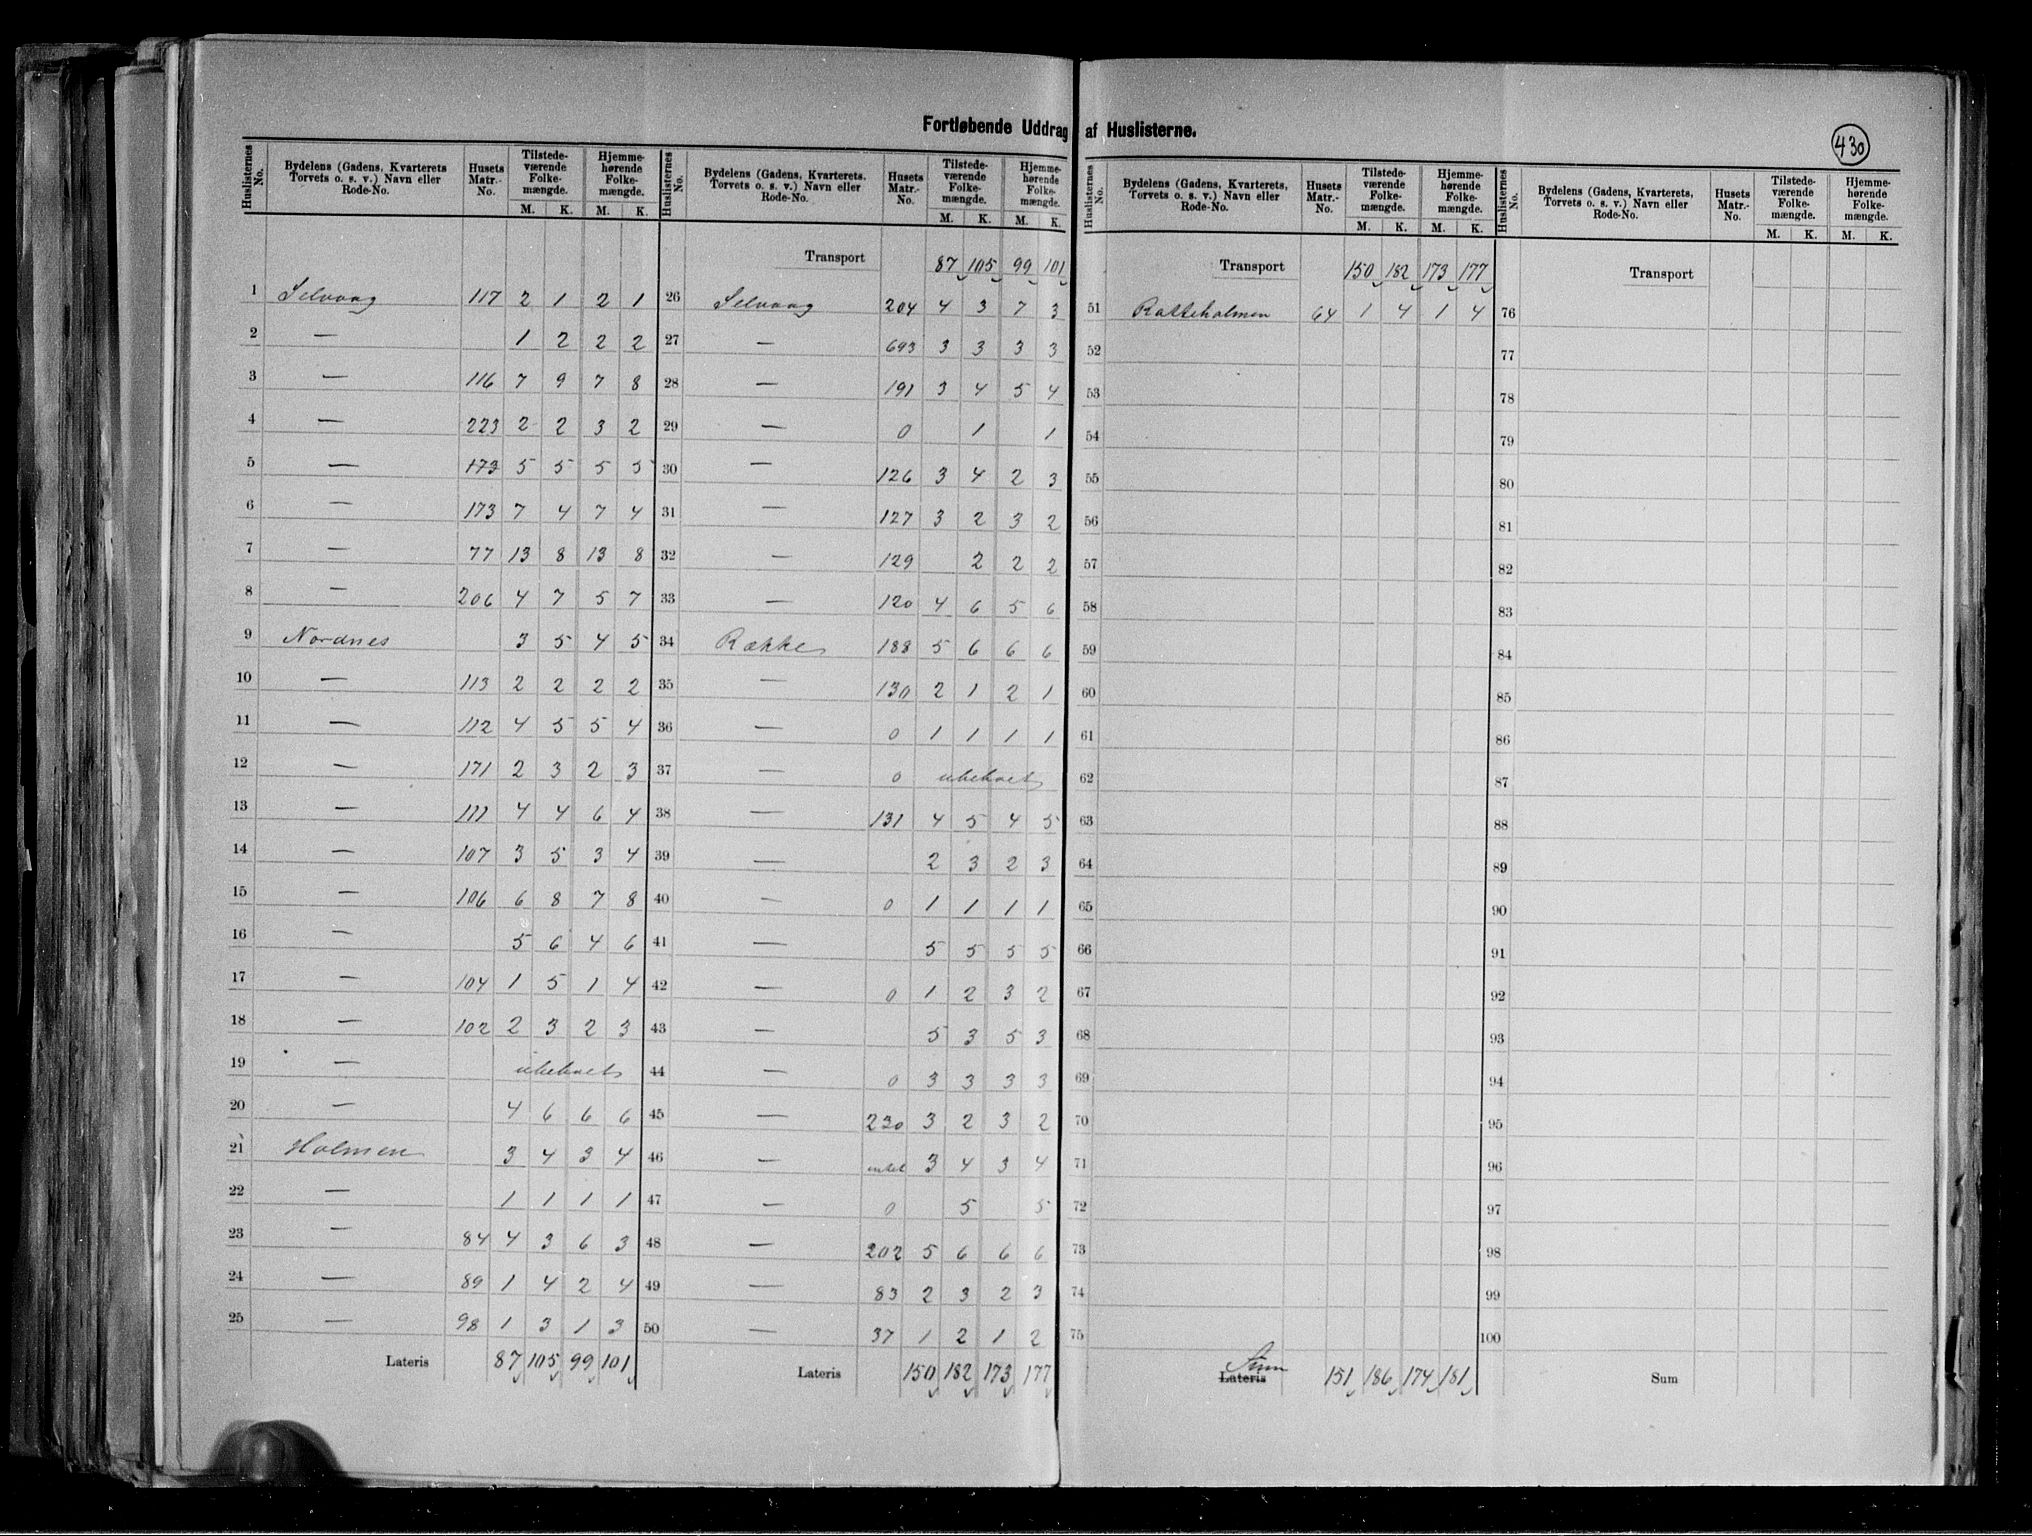 Fortløbende Uddrag af Huslisterne.
430
Huslisternes No. | Bydelens (Gadens, Kvarterets Torvets o. s. v.) Navn eller Rode-No. | Husets Matr.-No. | Tilstedeværende Folkemængde. M. K. | Hjemmehørende Folkemængde. M. K.
1 Selvaag 117 2 1 2 1
2 — 1 2 2 2
3 — 116 7 9 7 8
4 — 223 2 2 3 2
5 — 173 5 5 5 5
6 — 173 7 4 7 4
7 — 77 13 8 13 8
8 — 206 4 7 5 7
9 Nordnes 3 5 4 5
10 — 113 2 2 2 2
11 — 112 4 5 5 4
12 — 171 2 3 2 3
13 — 111 4 4 6 4
14 — 107 3 5 3 4
15 — 106 6 8 7 8
16 — 5 6 4 6
17 — 104 1 5 1 4
18 — 102 2 3 2 3
19 — ubeboet
20 — 4 6 6 6
21 Holmen 3 4 3 4
22 — 1 1 1 1
23 — 84 4 3 6 3
24 — 89 1 4 2 4
25 — 98 1 3 1 3
Lateris 87 105 99 101
Huslisternes No. | Bydelens (Gadens, Kvarterets, Torvets o. s. v.) Navn eller Rode-No. | Husets Matr.-No. | Tilstedeværende Folkemængde. M. K. | Hjemmehørende Folkemængde. M. K.
Transport 87 105 99 101
26 Selvaag 204 4 3 7 3
27 — 693 3 3 3 3
28 — 191 3 4 5 4
29 — 0 1 1
30 — 126 3 4 2 3
31 — 127 3 2 3 2
32 — 129 2 2 2
33 — 120 4 6 5 6
34 Række 188 5 6 6 6
35 — 130 2 1 2 1
36 — 0 1 1 1 1
37 — 0 ubeboet
38 — 131 4 5 4 5
39 — 2 3 2 3
40 — 0 1 1 1 1
41 — 5 5 5 5
42 — 0 1 2 3 2
43 — 5 3 5 3
44 — 0 3 3 3 3
45 — 230 3 2 3 2
46 — intet 3 4 3 4
47 — 0 5 5
48 — 202 5 6 6 6
49 — 83 2 3 2 3
50 — 37 1 2 1 2
Lateris 150 182 173 177
Huslisternes No. | Bydelens (Gadens, Kvarterets, Torvets o. s. v.) Navn eller Rode-No. | Husets Matr.-No. | Tilstedeværende Folkemængde. M. K. | Hjemmehørende Folkemængde. M. K.
Transport 150 182 173 177
51 Rotteholmen 64 1 4 1 4
52
53
54
55
56
57
58
59
60
61
62
63
64
65
66
67
68
69
70
71
72
73
74
75
Sum
Lateris 151 186 174 181
Huslisternes No. | Bydelens (Gadens, Kvarterets, Torvets o. s. v.) Navn eller Rode-No. | Husets Matr.-No. | Tilstedeværende Folkemængde. M. K. | Hjemmehørende Folkemængde. M. K.
Transport
76
77
78
79
80
81
82
83
84
85
86
87
88
89
90
91
92
93
94
95
96
97
98
99
100
Sum